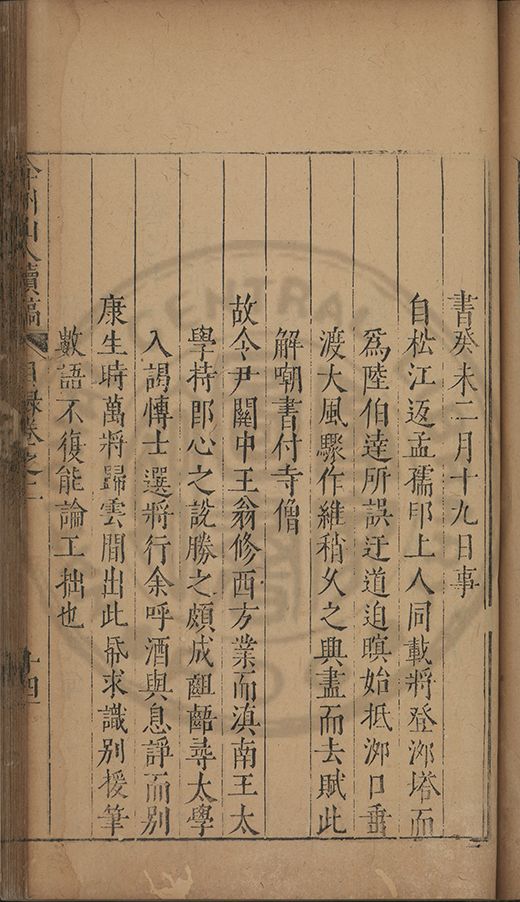 書癸未二月十九日事
自松江返孟孺卭上人同載將登泖塔而
爲陸伯達所誤迂道迫暝始抵泖口垂
渡大風驟作維稍久之興盡而去賦此
解嘲書付寺僧
故令尹關中王翁修西方業而滇南王太
學持卽心之說勝之頗成齟齬尋太學
入謁博士選將行余呼酒與息諍而別
康生時萬將歸雲間出此帋求識別援筆
數語不復能論工拙也
弇州山人續稿 目錄卷之二 十四